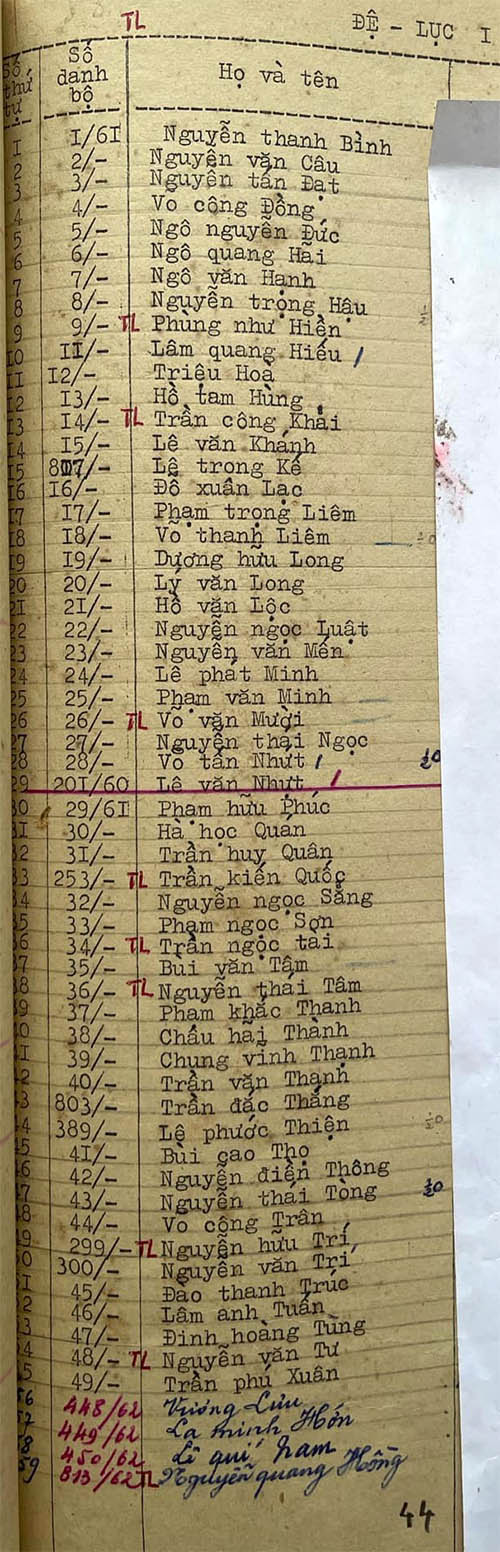 TL ĐỆ - LỤC I
Số thứ tự Số danh bộ Họ và tên
1 1/61 Nguyễn thanh Bình
2 2/- Nguyễn văn Câu
3 3/- Nguyễn tấn Đạt
4 4/- Vo công Đồng
5 5/- Ngô nguyên Đức
6 6/- Ngô quang Hải
7 7/- Ngô văn Hạnh
8 8/- Nguyễn trọng Hậu
9 9/- TL Phùng như Hiền
10 11/- Lâm quang Hiếu /
11 12/- Triệu Hoà
12 13/- Hồ tam Hùng
13 14/- TL Trần công Khải
14 15/- Lê văn Khánh
15 807/- Lê trọng Kế
16 16/- Đỗ xuân Lạc
17 17/- Phạm trọng Liêm
18 18/- Võ thanh Liêm
19 19/- Dương hữu Long
20 20/- Lý văn Long
21 21/- Hồ văn Lộc
22 22/- Nguyễn ngọc Luật
23 23/- Nguyễn văn Mến
24 24/- Lê phát Minh
25 25/- Phạm văn Minh
26 26/- TL Võ văn Mười
27 27/- Nguyễn thái Ngọc
28 28/- Vo tấn Nhứt /
29 201/60 Lê văn Nhựt /
30 29/61 Phạm hữu Phúc
31 30/- Hà học Quán
32 31/- Trần huy Quân
33 253/- TL Trần kiến Quốc
34 32/- Nguyễn ngọc Sắng
35 33/- Phạm ngọc Sơn
36 34/- TL Trần ngọc tai
37 35/- Bùi văn Tâm
38 36/- TL Nguyễn thái Tâm
39 37/- Phạm khắc Thanh
40 38/- Châu hải Thành
41 39/- Chung vinh Thạnh
42 40/- Trần văn Thạnh
43 803/- Trần đắc Thắng
44 389/- Lê phước Thiện
45 41/- Bùi cao Thọ
46 42/- Nguyễn điền Thông
47 43/- Nguyễn thái Tòng
48 44/- Vo công Trân
49 299/- TL Nguyễn hữu Trí
50 300/- Nguyễn văn Trí
51 45/- Đào thanh Trúc
52 46/- Lâm anh Tuấn
53 47/- Đinh hoàng Tùng
54 48/- TL Nguyễn văn Tư
55 49/- Trần phú Xuân
56 448/62 Vương Lưu
57 449/62 La minh Hớn
58 450/62 Lê quí Nam
59 813/62 TL Nguyễn quang Hồng
44